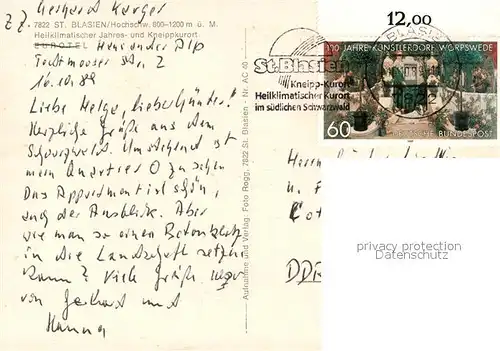 Gerhard Karger
z. Z.
7822 ST. BLASIEN/Hochschw. 800-1200 m ü. M.
Heilklimatischer Jahres- und Kneippkurort
EUROTEL Haus an der Alp
16.10.89
Liebe Helga, lieber Günter!
Herzliche Grüße aus dem
Schwarzwald. Umstehend ist
mein Quartier O zu sehen
Das Appartement ist schön,
auch der Ausblick. Aber
wie man so einen Betonklotz
in die Landschaft setzen
kann? Viele Grüße
von Gerhard und
Hanna
Aufnahme und Verlag: Foto Rogg, 7822 St. Blasien - Nr. AC 40
12,00
St. Blasien
Kneipp-Kurort
Heilklimatischer Kurort
im südlichen Schwarzwald
100 JAHRE KÜNSTLERDORF WORPSWEDE
60
DEUTSCHE BUNDESPOST
BLASIEN
7822
Herrn
u. F
Cot
DDR
privacy protection
Datenschutz